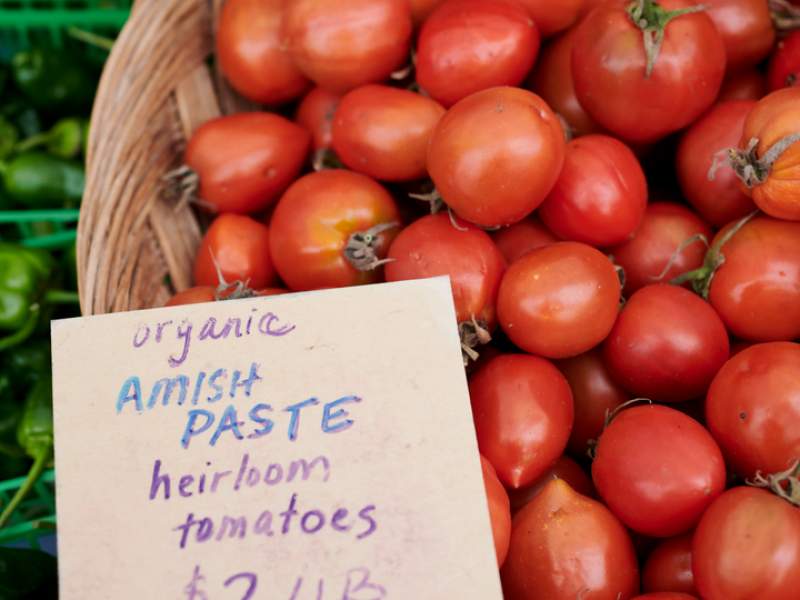 organic
AMISH
PASTE
heirloom
tomatoes
$2/LB